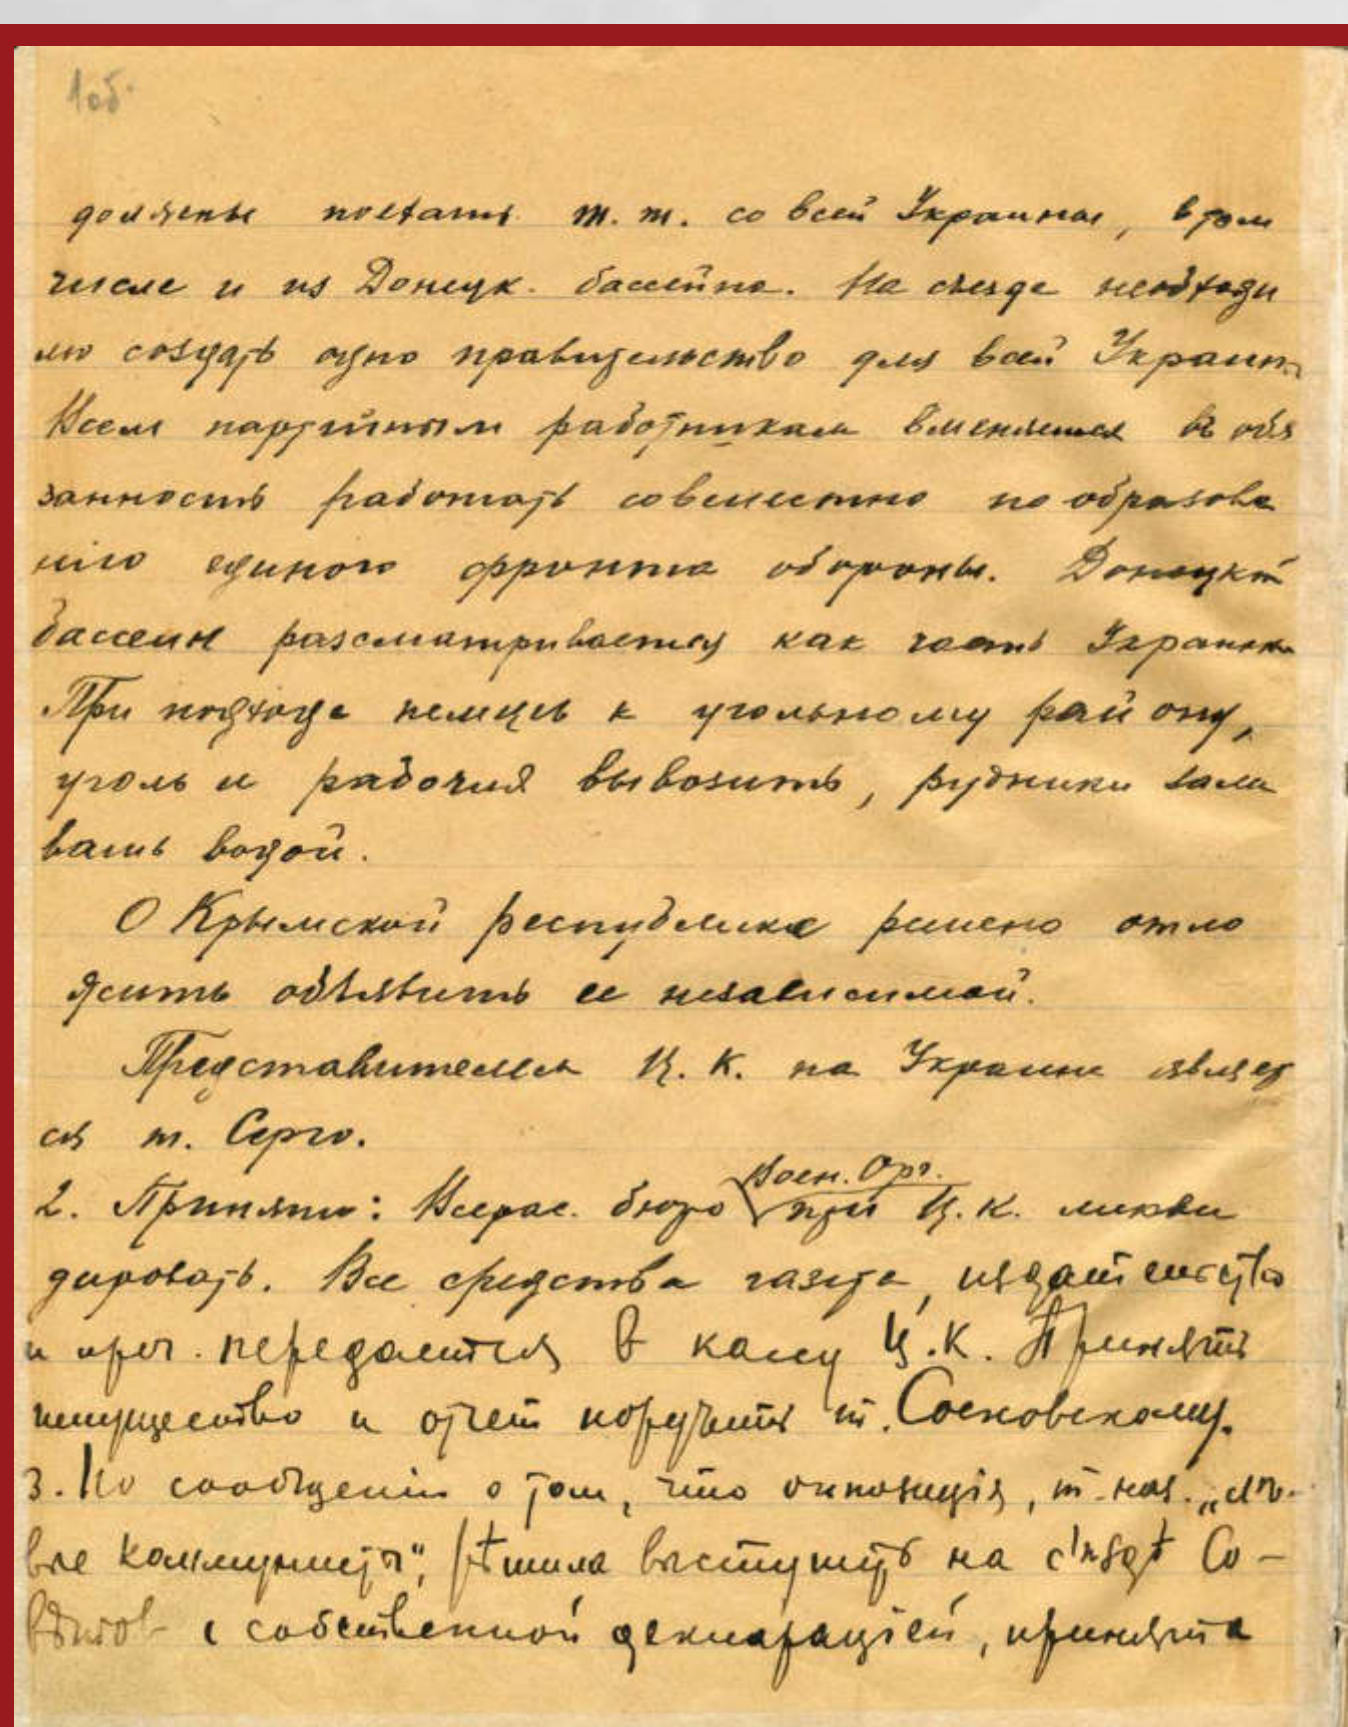 1об.
должны поехать т. т. со всей Украины, в том
числе и из Донецк. бассейна. На съезде необходи
мо создать одно правительство для всей Украины
Всем партийным работникам вменяется в обя
занность работать совместно по образова
нию единого фронта обороны. Донецкий
бассейн рассматривается как часть Украины
При подходе немцев к угольному району,
уголь и рабочия вывозить, рудники зали
вать водой.
О Крымской республике решено отло
жить объявить ее независимой.
Представителем Ц. К. на Украине являет
ся т. Серго.
Воен. Орг.
2. Принято: Всерос. бюро при Ц. К. ликви
дировать. Все средства газета, издательство
и проч. передаются в кассу Ц. К. Принять
имущество и отчет поручить т. Сосновскому.
3. По сообщении о том, что оппозиція, т. наз. „лѣ-
вые коммунисты", рѣшила выступить на съѣздѣ Со-
вѣтов с собственной декларацией, принята